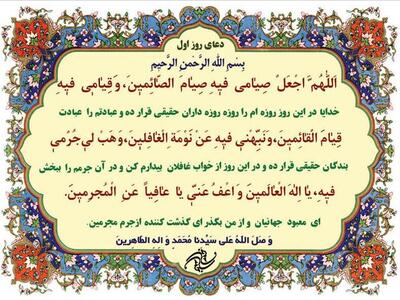 دعای روز اول
بِسْمِ اللَّهِ الرَّحْمنِ الرَّحِیْمِ
اَللّهُمَّ اجْعَلْ صِیٰامی فیهِ صِیٰامَ الصّٰائِمینَ، وَ قِیٰامی فیهِ
خدایا در این روز روزه ام را روزه روزه داران حقیقی قرار ده و عبادتم را عبادت
قِیٰامَ الْقٰائِمینَ، وَ نَبِّهْنی فیهِ عَنْ نَوْمَةِ الْغٰافِلینَ، وَ هَبْ لی جُرْمی
بندگان حقیقی قرار ده و در این روز از خواب غافلان بیدارم کن و در آن جرمم را ببخش
فیهِ، یٰا اِلهَ الْعٰالَمینَ وَ اعْفُ عَنّی یٰا عٰافِیاً عَنِ الْمُجرِمینَ.
ای معبود جهانیان و از من بگذر ای گذشت کننده ازجرم مجرمین.
وَ صَلَّ اللهُ عَلی سَیِّدِنا مُحَمَدٍ وَ الِهِ الطّاهِرینَ